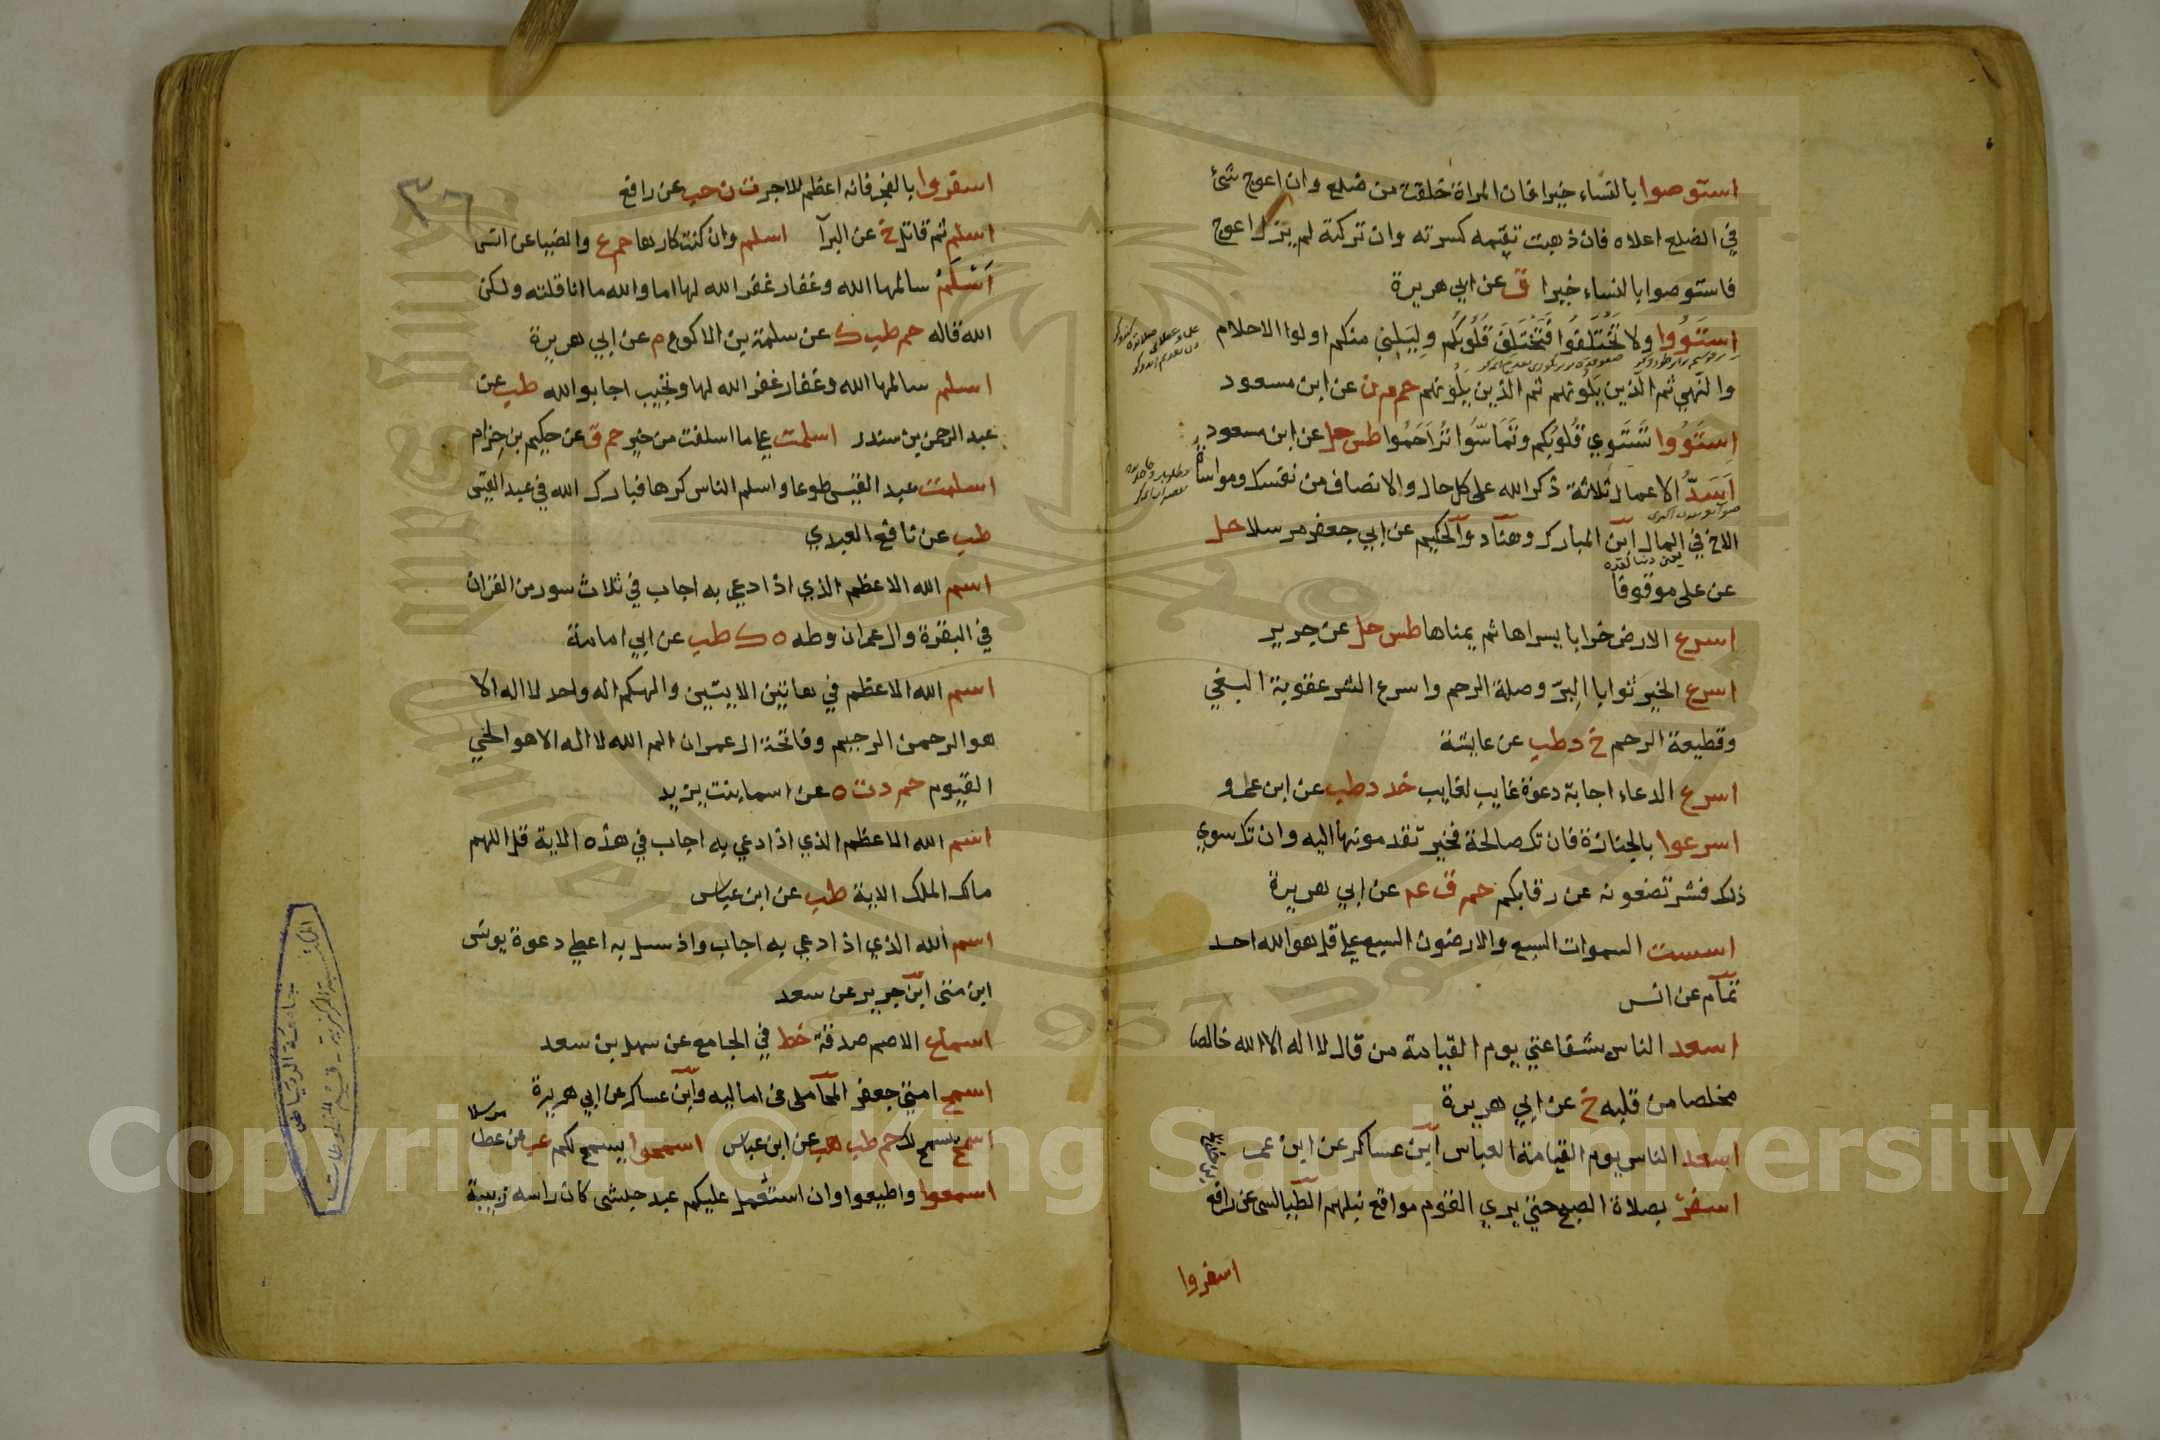 استوصوا بالنساء خيرا فان المراة خلقت من ضلع وان اعوج شئ
في الضلع اعلاه فان ذهبت تقيمه كسرته وان تركته لم يزل اعوج
فاستوصوا بالنساء خيرا ق عن ابي هريرة
اِستَوُوا ولا تَخْتَلَفُوا فَتَخْتَلِفَ قُلُوبُكُم وليَلِيَنِي منكم اولوا الاحلام
والنهي ثم الذين يلونهم ثم الذين يلونهم حم م ن عن ابن مسعود
اِستَوُوا تَستَوِي قُلُوبُكم وتَمَاسُّوا تَرَاحَمُوا طس حل عن ابن مسعود
اَسَدُّ الاعمال ثلاثة ذكر الله على كل حال والانصاف من نفسك ومواساة
الاخ في المال ابن المبارك وهناد والحكيم عن ابي جعفر مرسلا حل
عن على موقوفا
اسرع الارض خرابا يسراها ثم يمناها طس حل عن جرير
اسرع الخير ثوابا البرّ وصلة الرحم واسرع الشر عقوبة البغي
وقطيعة الرحم خ د طب عن عايشة
اسرع الدعاء اجابة دعوة غايب لغايب خد د طب عن ابن عمرو
اسرعوا بالجنازة فان تك صالحة فخير تقدمونها اليه وان تك سوي
ذلك فشر تضعونه عن رقابكم حم ق عم عن ابي هريرة
اسست السموات السبع والارضون السبع على قل هو الله احد
تمام عن انس
اسعد الناس بشفاعتي يوم القيامة من قال لا اله الا الله خالصا
مخلصا من قلبه خ عن ابي هريرة
اسعد الناس يوم القيامة العباس ابن عساكر عن ابن عمر
اسفر بصلاة الصبح حتي يري القوم مواقع نبلهم الطيالسى عن رافع
اسفروا
٣٦
اسفروا بالفجر فانه اعظم للاجر ت ن حب عن رافع
اسلم ثم قاتل خ عن البرآ اسلم وان كنت كارها حم ع والضيا عن انس
اَسْلَمُ سالمها الله وغفار غفر الله لها اما والله ما انا قلته ولكن
الله قاله حم طب ك عن سلمة بن الاكوع م عن ابي هريرة
اسلم سالمها الله وغفار غفر الله لها وتجيب اجابوا الله طب عن
عبد الرحمن بن سندر اسلمت على ما اسلفت من خير حم ق عن حكيم بن حزام
اسلمت عبد القيس طوعا واسلم الناس كرها فبارك الله في عبد القيس
طب عن نافع العبدي
اسم الله الاعظم الذي اذا دعي به اجاب في ثلاث سور من القران
في البقرة وال عمران وطه ه ك طب عن ابي امامة
اسم الله الاعظم في هاتين الايتين والهكم اله واحد لا اله الا
هو الرحمن الرحيم وفاتحة ال عمران الم الله لا اله الا هو الحي
القيوم حم د ت ه عن اسما بنت يزيد
اسم الله الاعظم الذي اذا دعي به اجاب في هذه الاية قل اللهم
مالك الملك الاية طب عن ابن عباس
اسم الله الذي اذا دعي به اجاب واذ سيل به اعطي دعوة يونس
ابن متى ابن جرير عن سعد
اسماع الاصم صدقة خط في الجامع عن سهل بن سعد
اسمح امتي جعفر المحاملى فى اماليه وابن عساكر عن ابي هريرة
اسمح يسمح لك حم طب هب عن ابن عباس اسمحوا يسمح لكم عب عن عطا مرسلا
اسمعوا واطيعوا وان استعمل عليكم عبد حبشى كان راسه زبيبة
جامعة الرياض
Copyright © King Saud University
1957